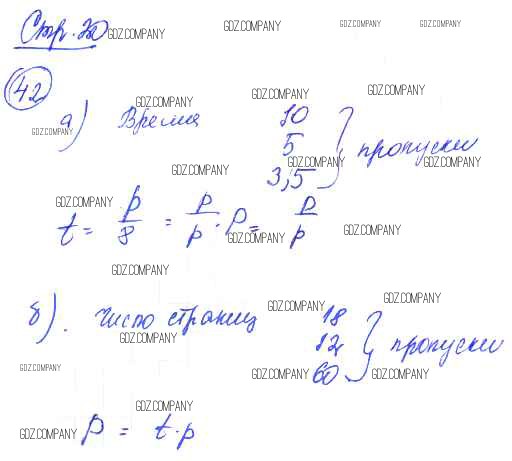 Стр. 20 GDZ.COMPANY GDZ.COMPANY GDZ.COMPANY GDZ.COMPANY
42 GDZ.COMPANY GDZ.COMPANY GDZ.COMPANY
а) Время 10
GDZ.COMPANY 5 } пропуски
GDZ.COMPANY 3,5 GDZ.COMPANY GDZ.COMPANY
GDZ.COMPANY
t = p/8 = p/p · p = p/p GDZ.COMPANY GDZ.COMPANY
GDZ.COMPANY
б). число страниц 18 GDZ.COMPANY GDZ.COMPANY
GDZ.COMPANY 12 } пропуски
GDZ.COMPANY GDZ.COMPANY 60 GDZ.COMPANY
GDZ.COMPANY
GDZ.COMPANY p = t·p